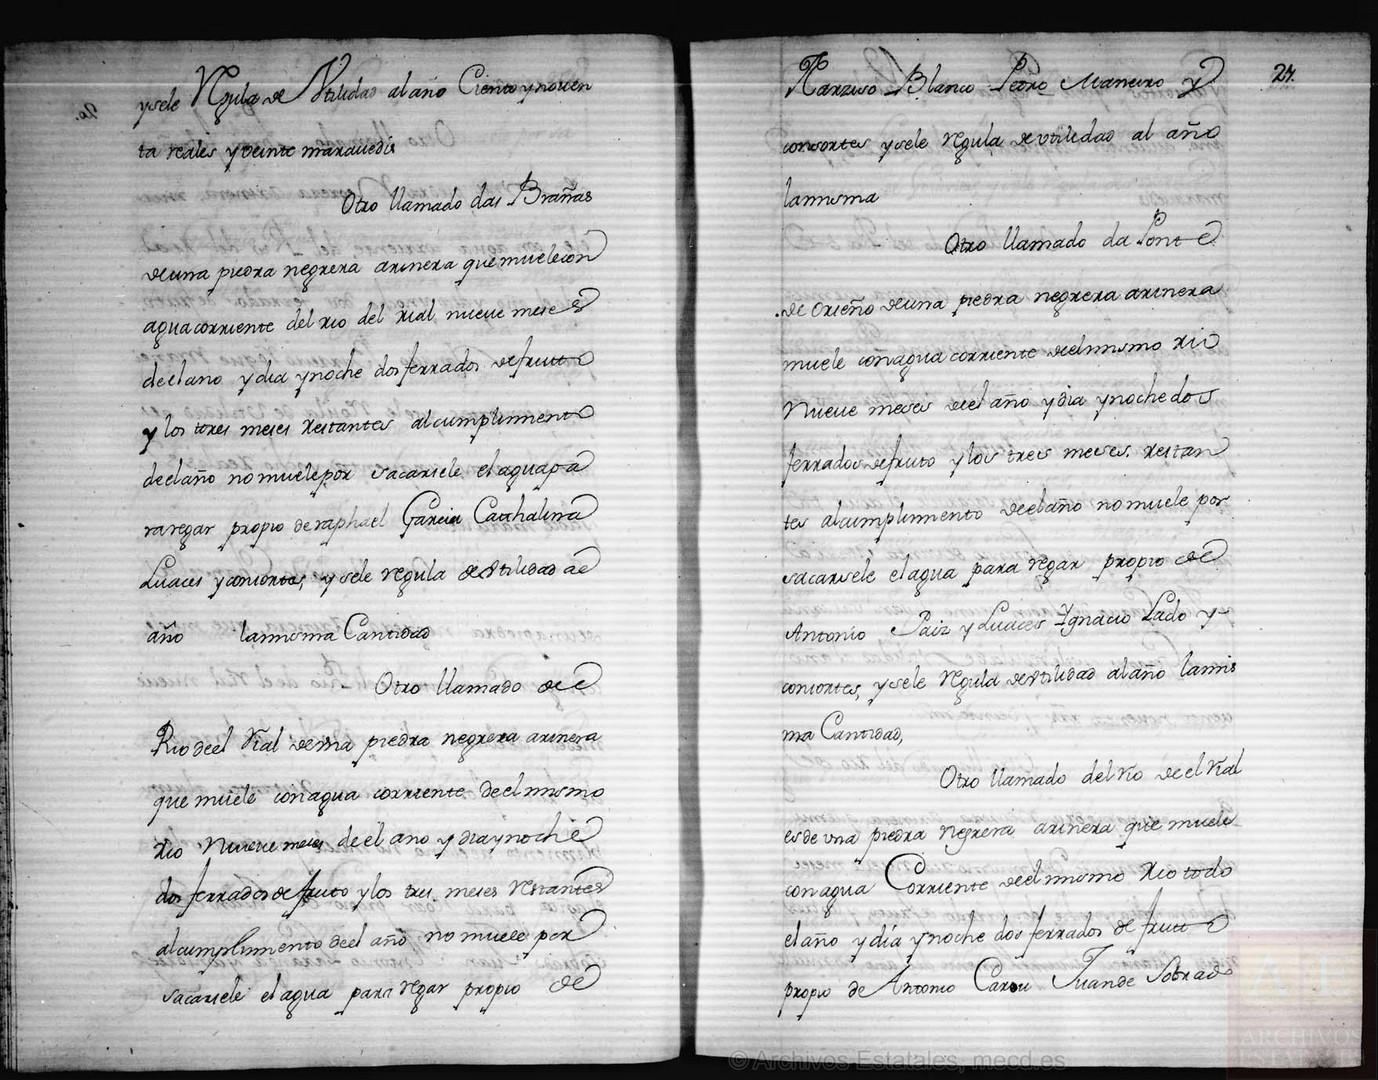 ysele Regula de Utilidad al año Ciento y noven
ta reales y veinte maravedis
Otro llamado das Brañas
de una piedra negrera arinera que muele con
agua corriente del rio del Rial nueve meses
de el ano y dia y noche dos ferrados de frutto
y los tres meses restantes al cumplimento
de el año no muele por sacarsele el agua pa
ra regar propio de raphael Garcia Catthalina
Luaces y consortes, y sele regula de Utilidad al
año la misma Cantidad
Otro llamado de el
Rio de el Rial de una piedra negrera arinera
que muele con agua corriente de el mismo
rio Nueve meses de el ano y dia y noche
dos ferrados de fruto y los tres meses restantes
al cumplimento de el año no muele por
sacarsele el agua para regar propio de
24.
Narziso Blanco Pedro Maneiro y
consortes y sele regula de utilidad al año
la misma
Otro llamado da Ponte
de Orieño de una piedra negrera arinera
muele con agua corriente de el mismo rio
Nueve meses de el año y dia y noche dos
ferrados de fruto y los tres meses restan
tes al cumplimento de el año no muele por
sacarsele el agua para regar propio de
Antonio Paiz y Luaces Ygnacio Lado y
consortes, y sele regula de Utilidad al año la mis
ma Cantidad,
Otro llamado del rio de el Rial
es de una piedra negrera arinera que muele
con agua Corriente de el mismo rio todo
el año y dia y noche dos ferrados de frutto
propio de Antonio Juan de Sobrado
ARCHIVOS
ESTATALES
© Archivos Estatales, mecd.es